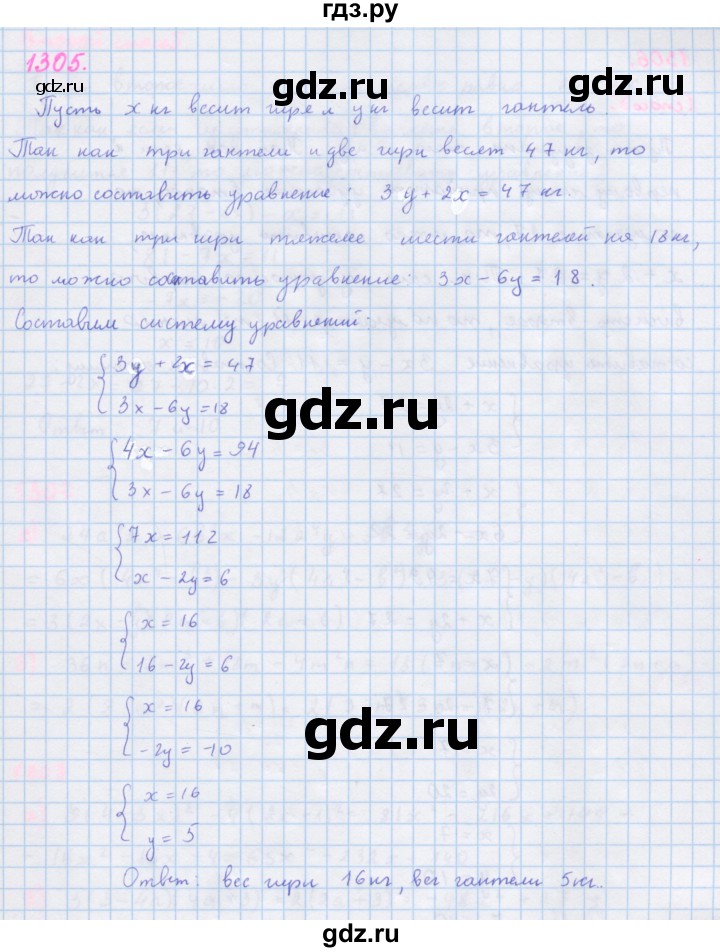 гдз.ру
1305.
gdz.ru
Пусть x кг весит гиря и y кг весит гантель.
Так как три гантели и две гири весят 47 кг, то
можно составить уравнение: 3y + 2x = 47 кг.
Так как три гири тяжелее шести гантелей на 18 кг,
то можно составить уравнение: 3x - 6y = 18.
Составим систему уравнений:
3y + 2x = 47
gdz.ru
3x - 6y = 18
4x - 6y = 94
3x - 6y = 18
7x = 112
x - 2y = 6
x = 16
16 - 2y = 6
x = 16
gdz.ru
-2y = -10
x = 16
y = 5
Ответ: вес гири 16 кг, вес гантели 5 кг.
gdz.ru